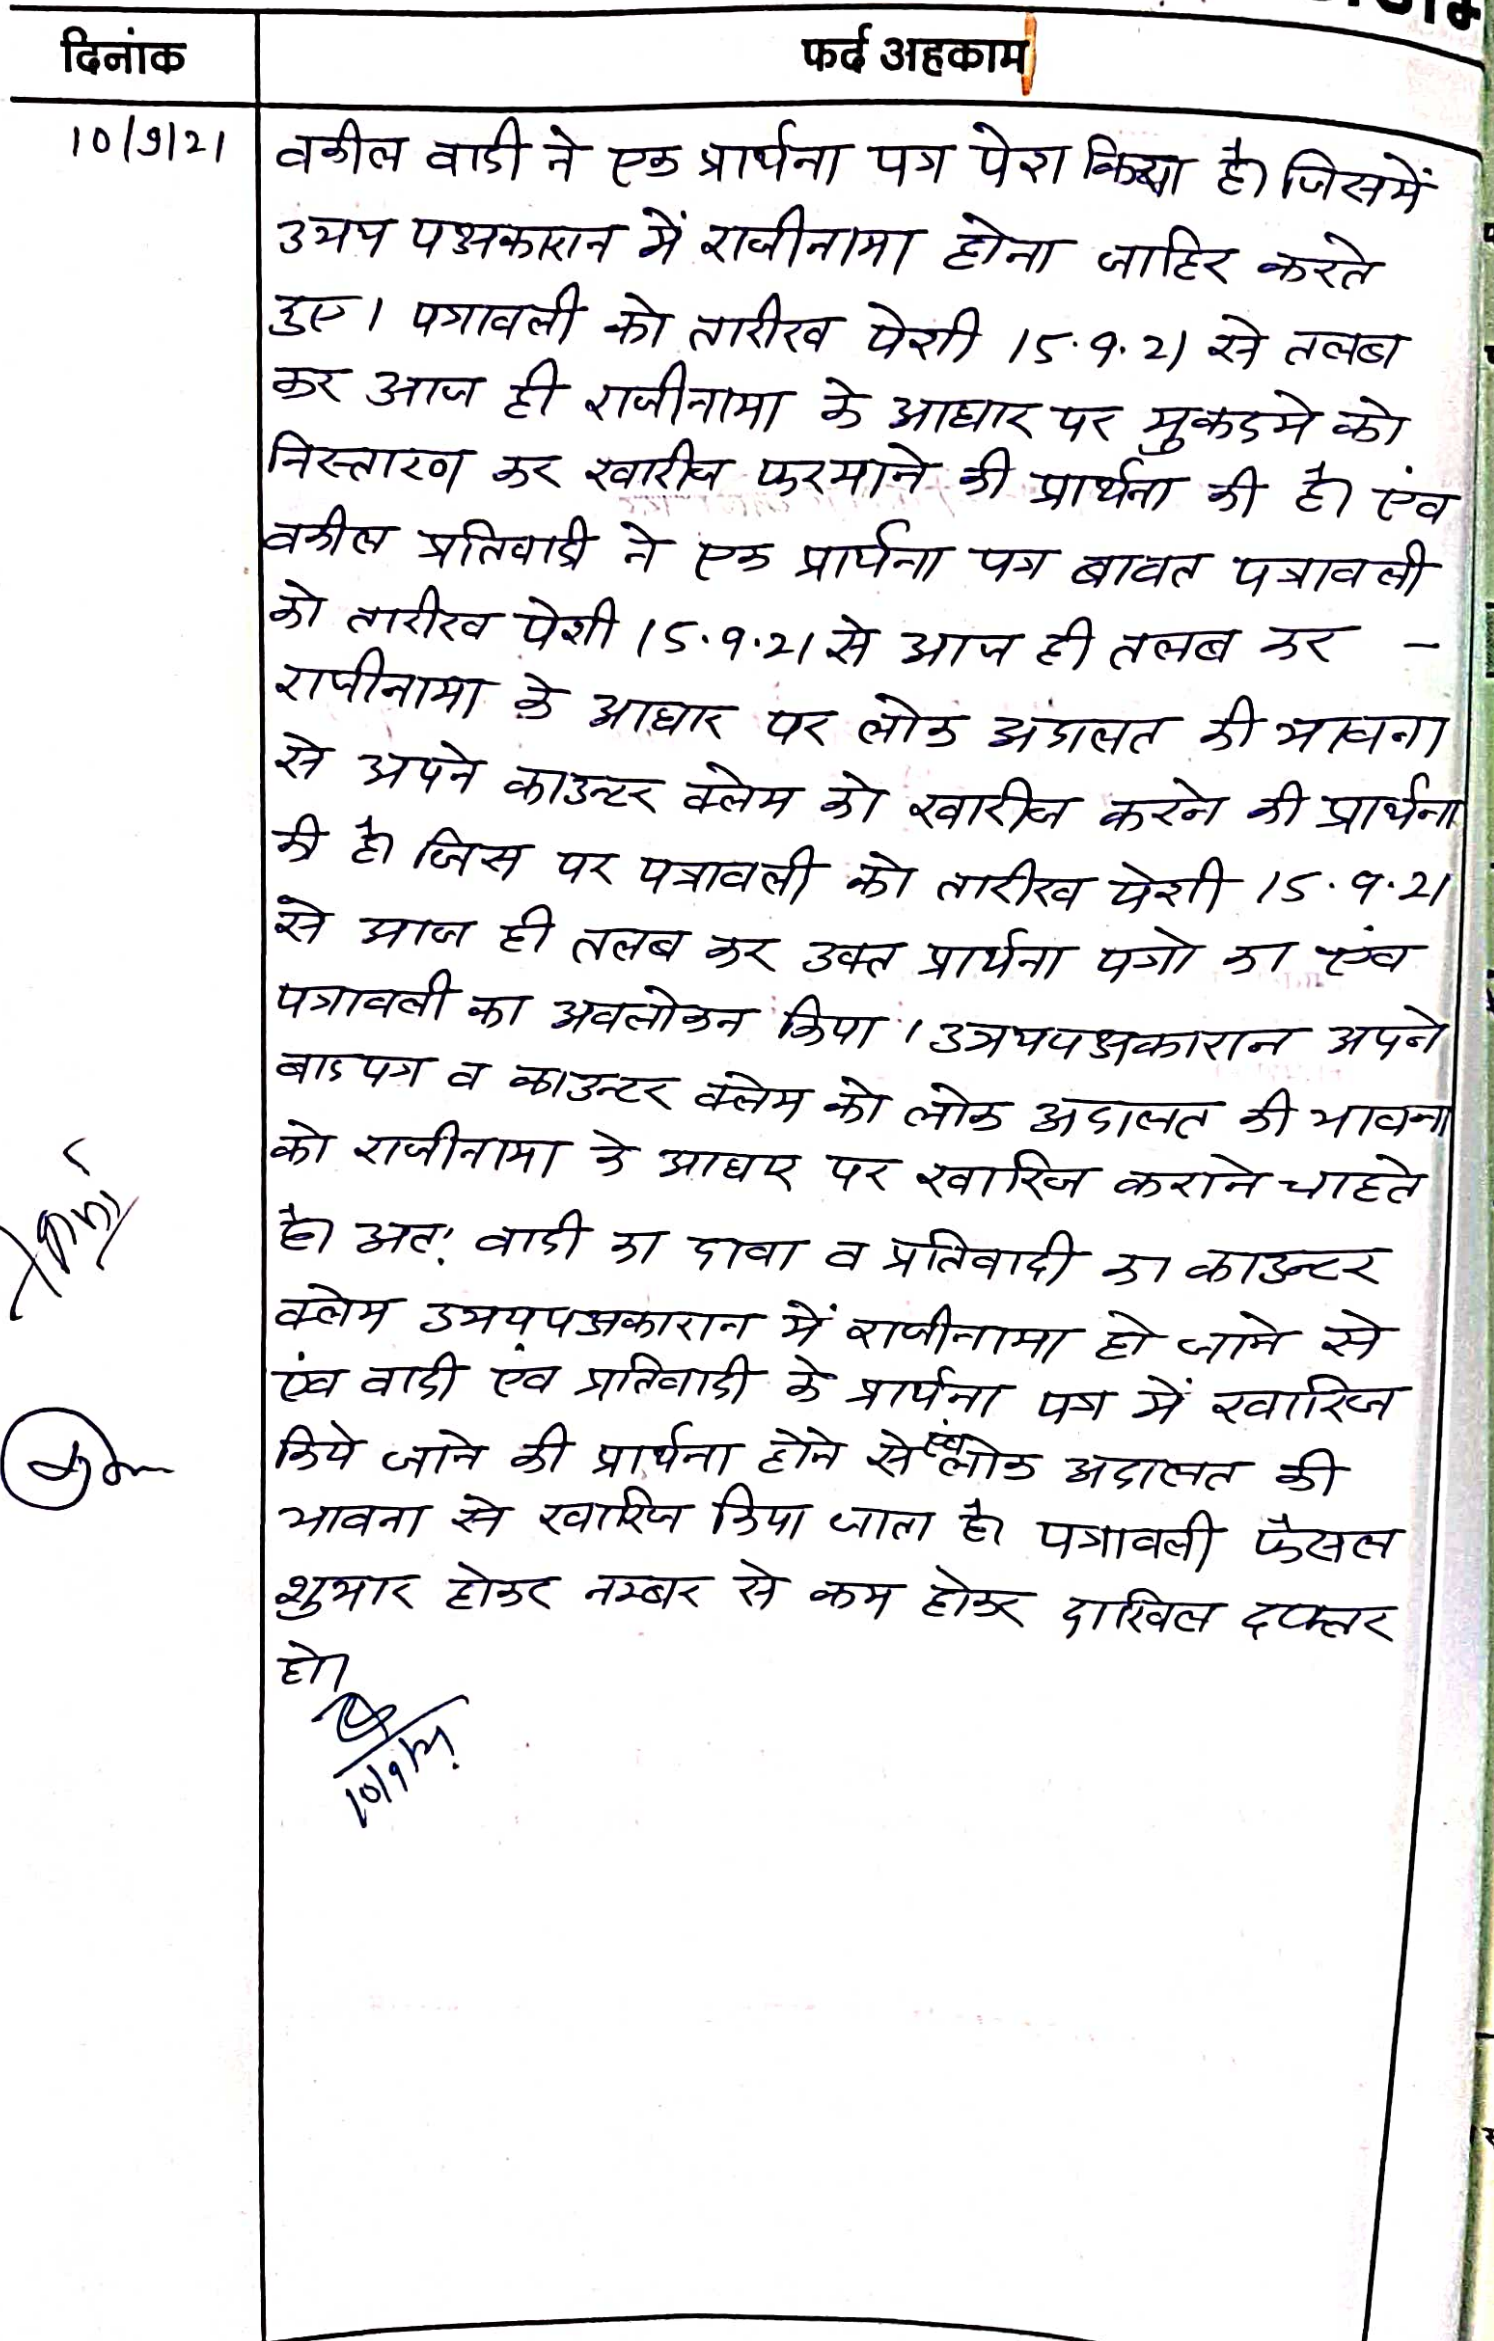 दिनांक
फर्द अहकाम
10/9/21
वकील वादी ने एक प्रार्थना पत्र पेश किया है। जिसमें
उभय पक्षकारान में राजीनामा होना जाहिर करते
हुए। पत्रावली को तारीख पेशी 15.9.21 से तलब
कर आज ही राजीनामा के आधार पर मुकदमे को
निस्तारण कर खारीज फरमाने की प्रार्थना की है। एंव
वकील प्रतिवादी ने एक प्रार्थना पत्र बाबत पत्रावली
को तारीख पेशी 15.9.21 से आज ही तलब कर -
राजीनामा के आधार पर लोक अदालत की भावना
से अपने काउन्टर क्लेम को खारीज करने की प्रार्थना
की है। जिस पर पत्रावली को तारीख पेशी 15.9.21
से आज ही तलब कर उक्त प्रार्थना पत्रो का एंव
पत्रावली का अवलोकन किया। उभयपक्षकारान अपने
वादपत्र व काउन्टर क्लेम को लोक अदालत की भावना
को राजीनामा के आधार पर खारिज कराने चाहते
है। अत: वादी का दावा व प्रतिवादी का काउन्टर
क्लेम उभयपक्षकारान में राजीनामा हो जाने से
एंव वादी एंव प्रतिवादी के प्रार्थना पत्र में खारिज
किये जाने की प्रार्थना होने से एंव लोक अदालत की
भावना से खारिज किया जाता है। पत्रावली फैसल
शुमार होकर नम्बर से कम होकर दाखिल दफ्तर
हो।
10/9/21